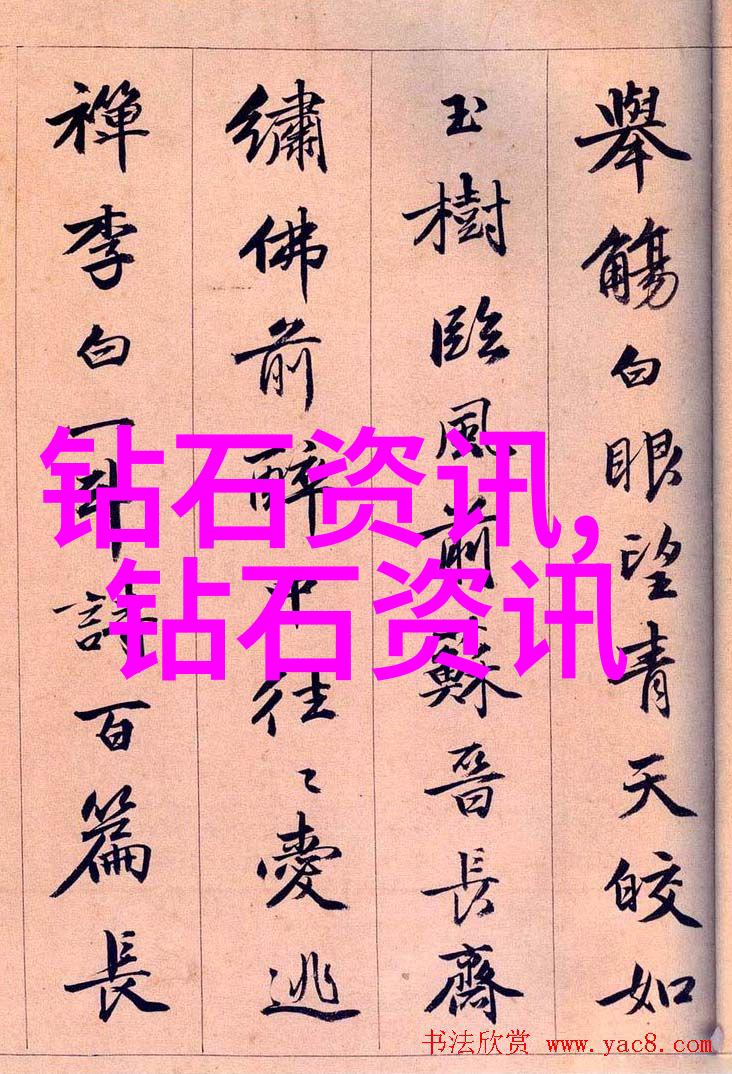 舉觴白眼望青天皎如
玉樹臨風前蘇晉長齋
繡佛前醉中往〻愛逃
禪李白一斗詩百篇長
钻石资讯,
钻石资讯
书法欣赏 www.yac8.com